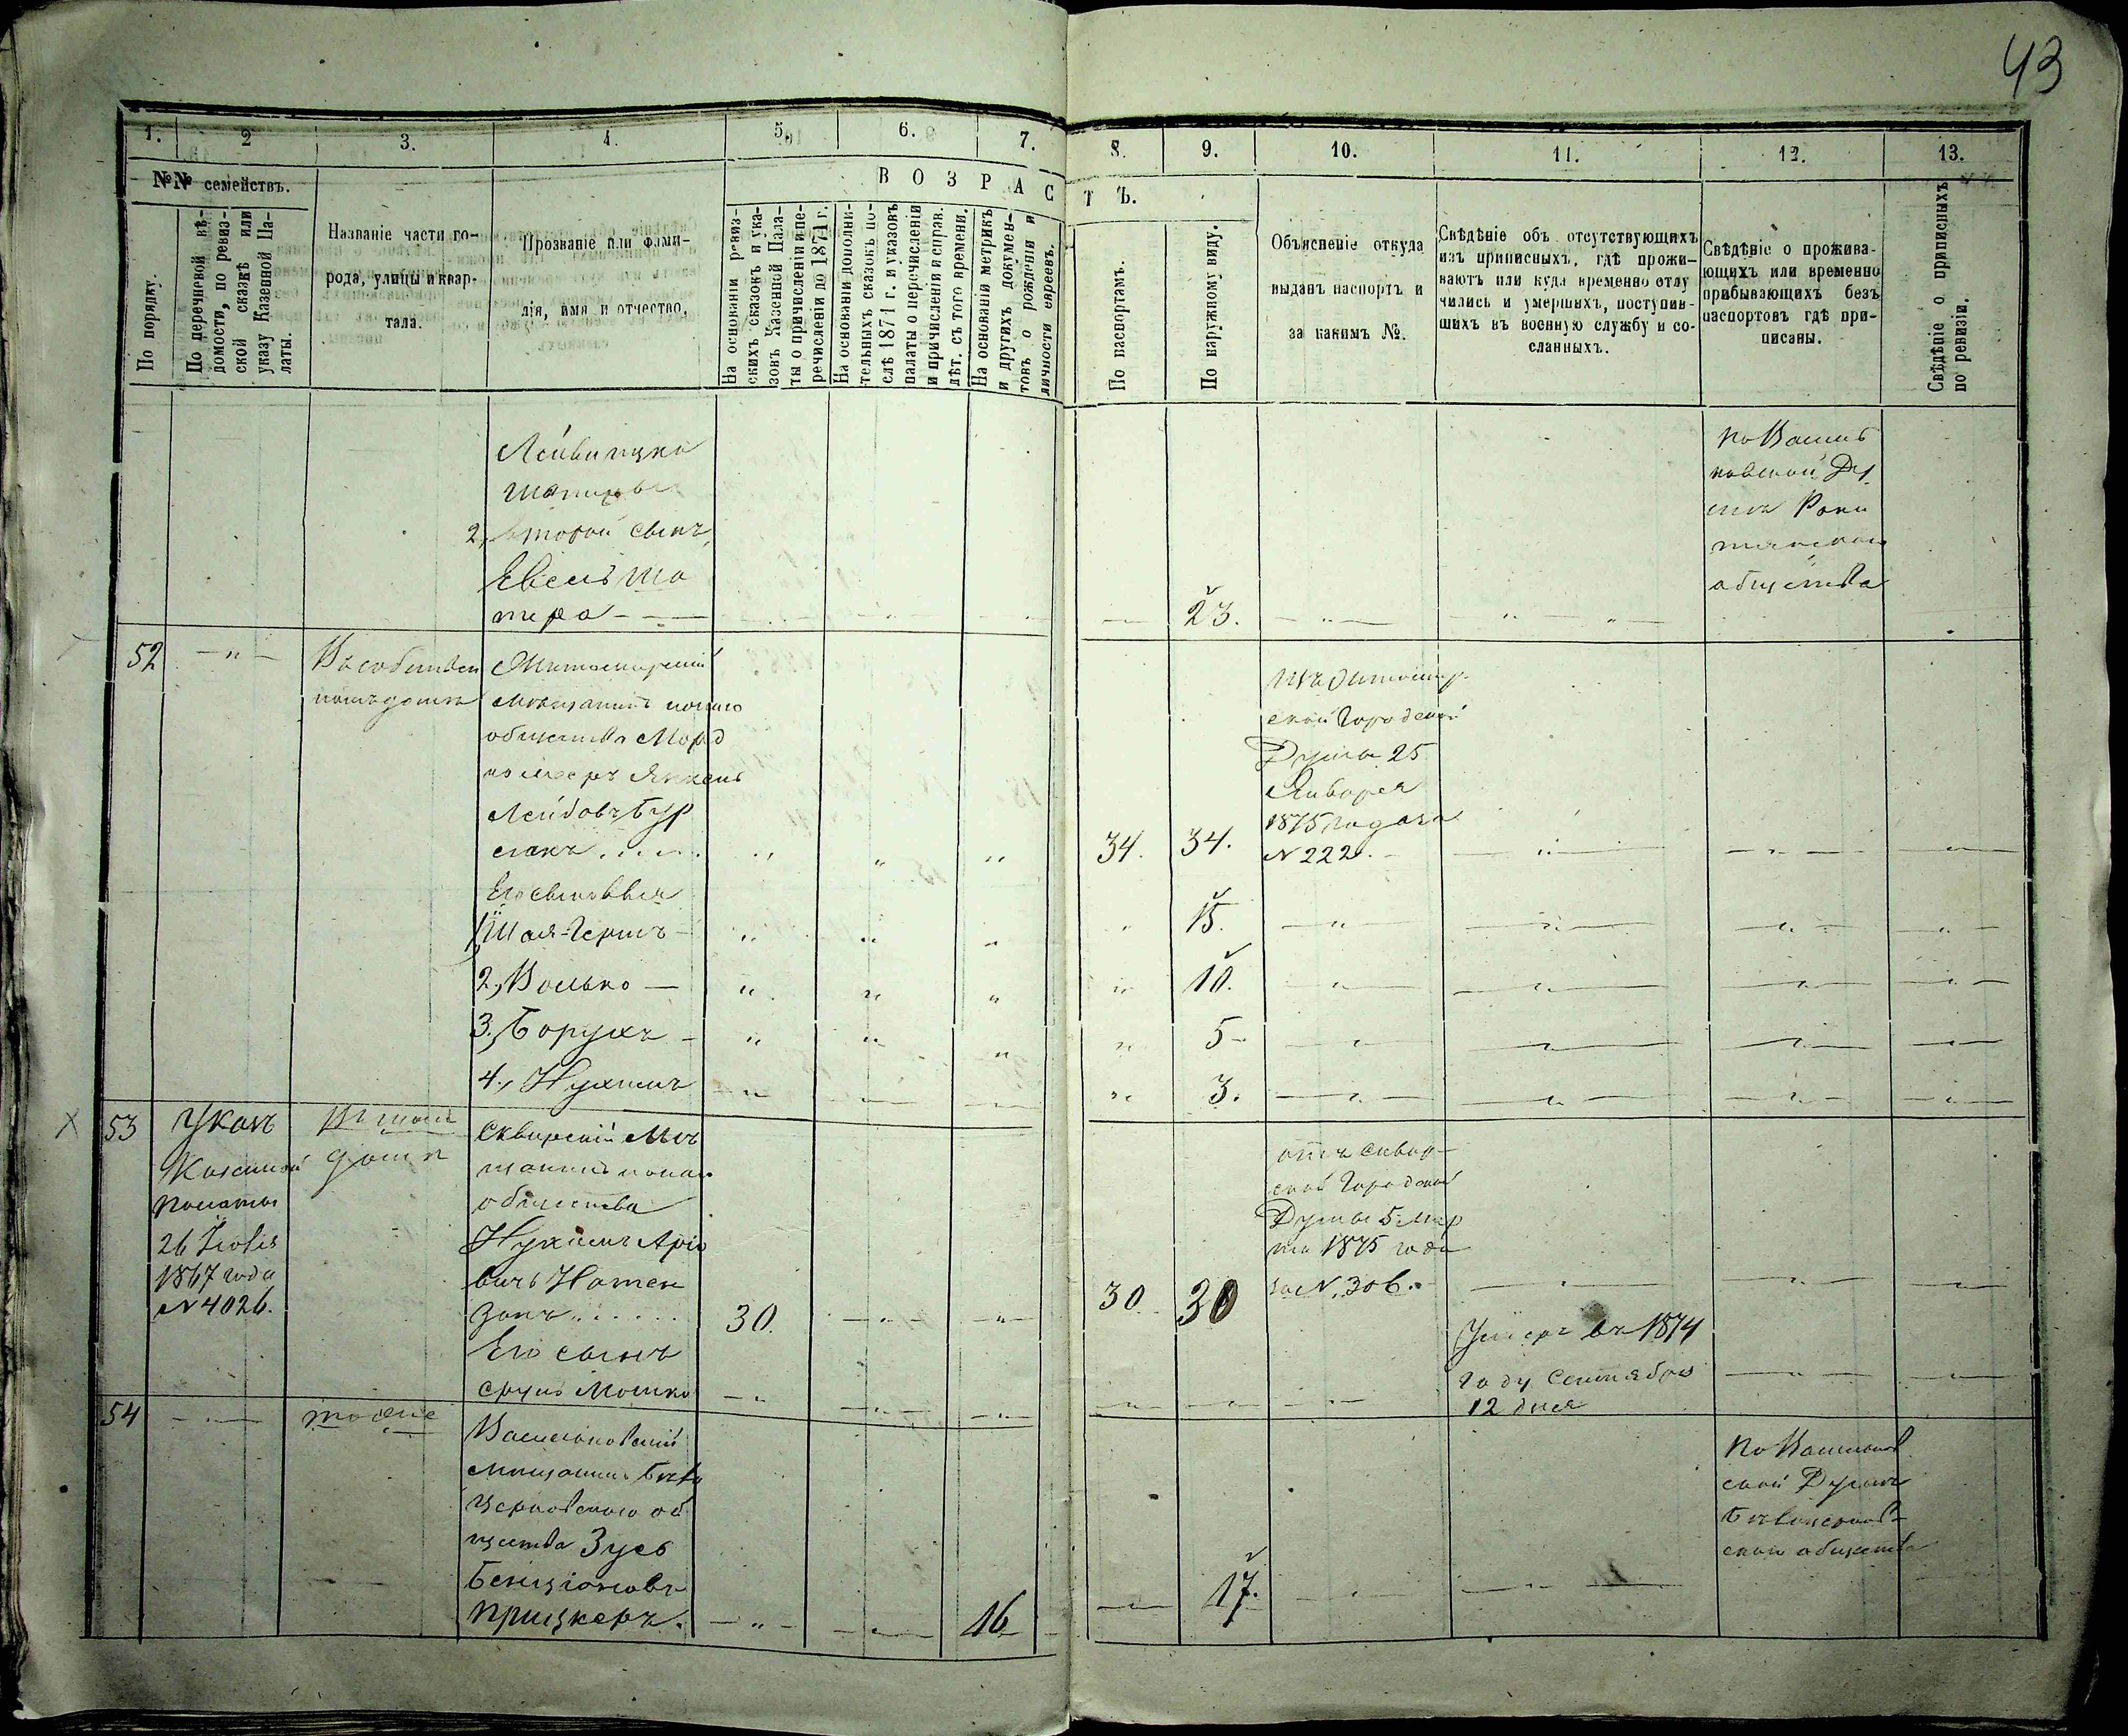 43
1. 2 3. 4. 5. 6. 7. 8. 9. 10. 11. 12. 13.
№№ семействъ.
В О З Р А С Т Ъ.
По порядку.
По перечневой вѣ-
домости, по ревиз-
ской сказкѣ или
указу Казенной Па-
латы.
Названіе части го-
рода, улицы и квар-
тала.
Прозваніе или фами-
лія, имя и отчество.
На основаніи ревиз-
скихъ сказокъ и ука-
зовъ Казенной Пала-
ты о причисленіи и пе-
речисленіи до 1871 г.
На основаніи дополни-
тельныхъ сказокъ по-
слѣ 1871 г. и указовъ
палаты о перечисленіи
и причисленіи и справ.
лѣт. съ того времени.
На основаніи метрикъ
и другихъ докумен-
товъ о рожденіи и
личности евреевъ.
По паспортамъ.
По наружному виду.
Объясненіе откуда
выданъ паспортъ и
за какимъ №.
Свѣдѣніе объ отсутствующихъ
изъ приписныхъ, гдѣ прожи-
ваютъ или куда временно отлу
чились и умершихъ, поступив-
шихъ въ военную службу и со-
сланныхъ.
Свѣдѣніе о прожива-
ющихъ или временно
прибывающихъ безъ
паспортовъ гдѣ при-
писаны.
Свѣдѣніе о приписныхъ
по ревизіи.
2, второй сынъ,
Евель Ша
тера
23.
по Василь
ковской Ду
мѣ Роки
тянского
общества
52
В собствен
номъ домѣ
Житомирскій
мѣщанинъ
общества Морд
ко Мееръ Янкель
Лейбовъ Бур
лакъ
34. 34.
Житомир
ской Городской
Думы 25
Января
1875 года за
№ 222.
Его сыновья
1, Шая-Гершъ 15.
2, Волько 10.
3, Борухъ 5
4, Нухимъ 3.
53
Указъ
Казенной
палаты
26 Іюля
1867 года
№ 4026.
Въ томъ
домѣ
Сквирскій мѣ
щанинъ
общества
Нухимъ Аріо
вичъ Натен
зонъ
30. 30 30
отъ Сквир-
ской Городской
Думы 5 Мар
та 1875 года
за №. 306.
Его сынъ
Сруль Мошко
Умеръ въ 1874
году Сентября
12 дня
54
тоже
Васильковскій
мѣщанинъ Бѣло
церковского об
щества Зусь
Бенціоновъ
Прицкеръ.
16 17.
По Васильков
ской Думѣ
Бѣлоцерков-
ского общества